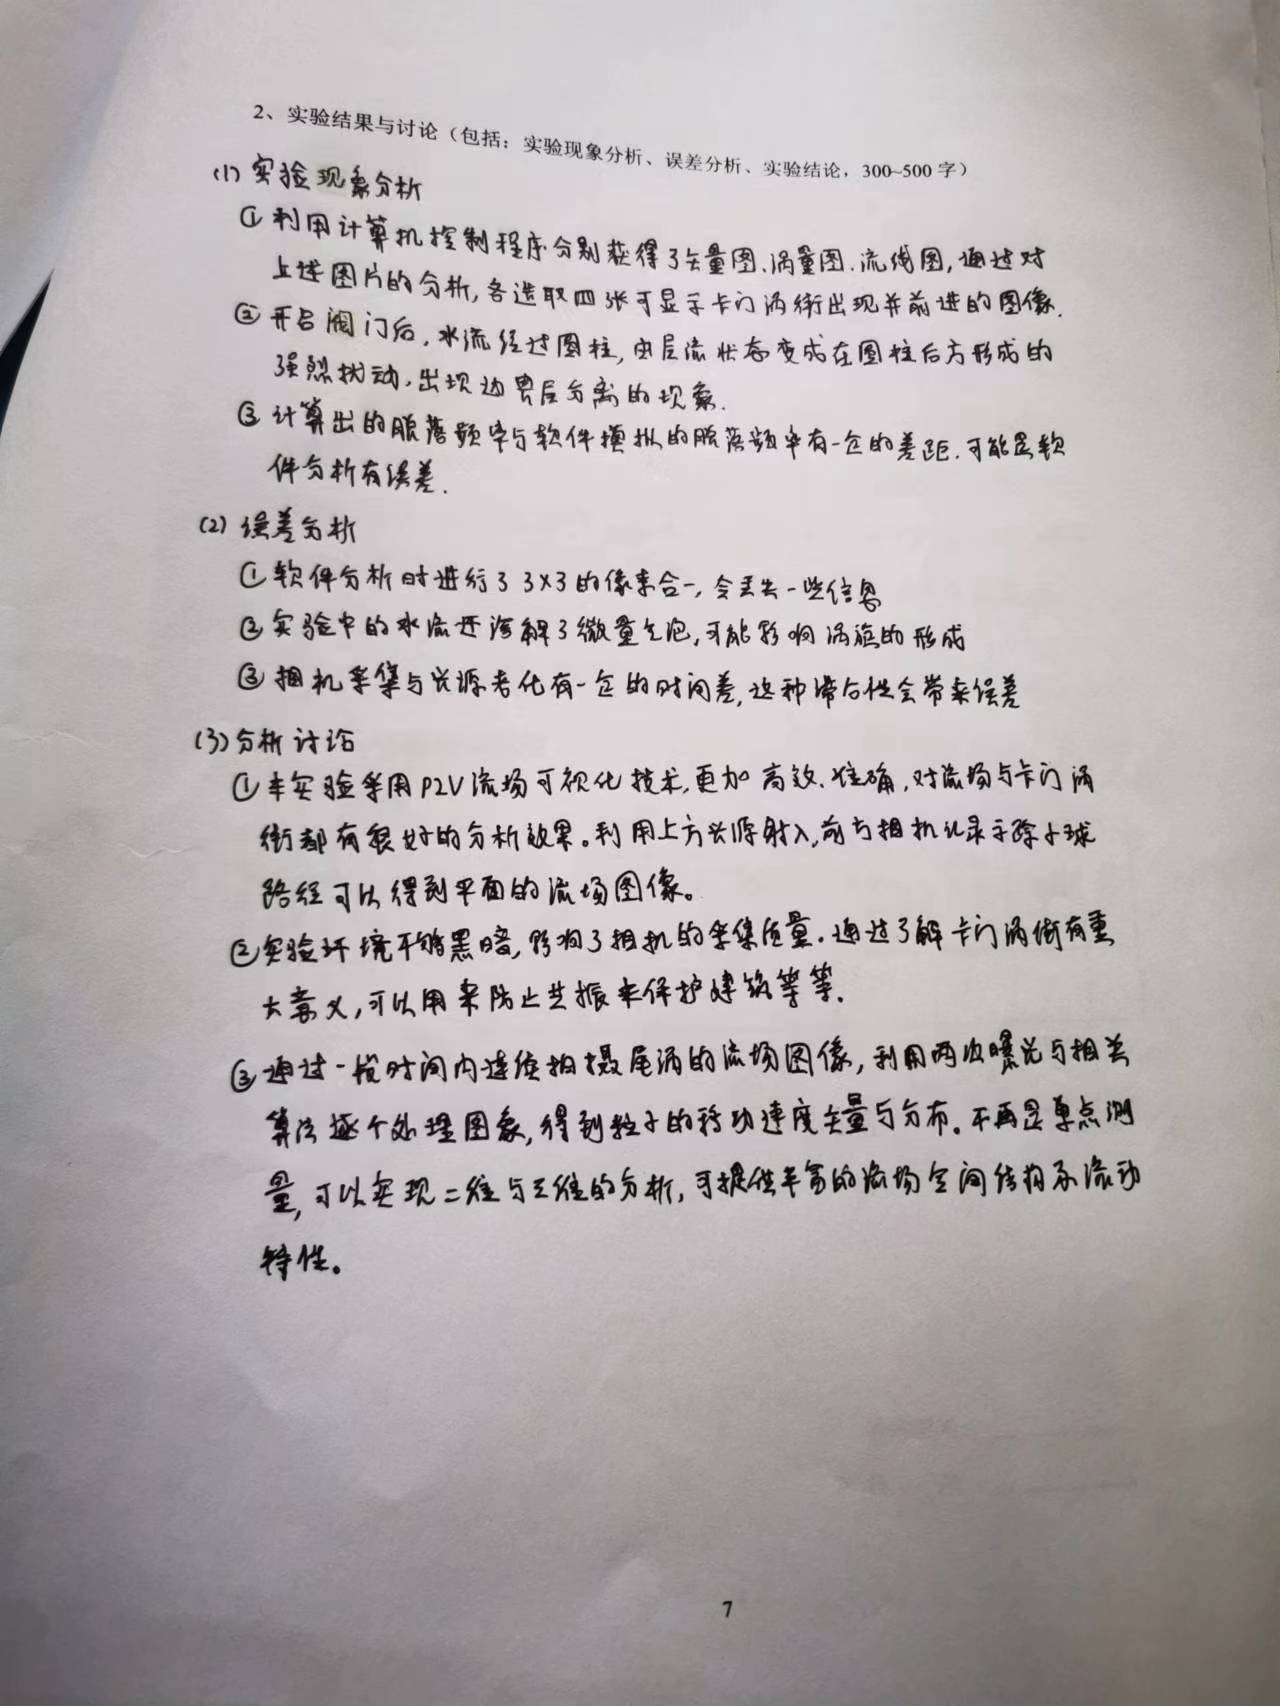 2、实验结果与讨论（包括：实验现象分析、误差分析、实验结论，300~500 字）
(1) 实验现象分析
① 利用计算机控制程序分别获得了矢量图、涡量图、流线图，通过对
上述图片的分析，各选取四张可显示卡门涡街出现并前进的图像.
② 开启阀门后，水流经过圆柱，由层流状态变成在圆柱后方形成的
强烈扰动，出现边界层分离的现象.
③ 计算出的脱落频率与软件模拟的脱落频率有一定的差距.可能是软
件分析有误差.
(2) 误差分析
① 软件分析时进行了3×3的像素合一，会丢失一些信息
② 实验中的水流还溶解了微量气泡，可能影响涡旋的形成
③ 相机采集与光源老化有一定的时间差，这种滞后性会带来误差
(3) 分析讨论
① 本实验采用PIV流场可视化技术，更加高效、准确，对流场与卡门涡
街都有很好的分析效果。利用上方光源射入，前方相机记录示踪小球
路径可以得到平面的流场图像。
② 实验环境不够黑暗，影响了相机的采集质量.通过了解卡门涡街有重
大意义，可以用来防止共振来保护建筑等等.
③ 通过一段时间内连续拍摄尾涡的流场图像，利用两次曝光与相关
算法逐个处理图象，得到粒子的移动速度矢量与分布。不再是单点测
量，可以实现二维与三维的分析，可提供丰富的流场空间结构及流动
特性。
7